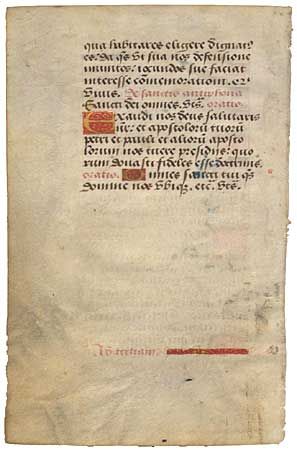 qua habitares eligere dignar
es: da q̃s ut sua nos defensione
munitos: iocundos sue faciat
interesse commemorationi. Per
De sanctis antiphona
Sancti dei omnes. vs. oratio.
Exaudi nos deus salutaris
nr̃: et apostolorũ tuorũ
petri et pauli et alioru͂ aposto
lorum nos tuere presidijs: quo
rum donasti fideles esse doctrinis.
oratio. Omnes sancti tui q̃s
domine nos ubiq̃. etc. vt s̃.
Ad tertiam.